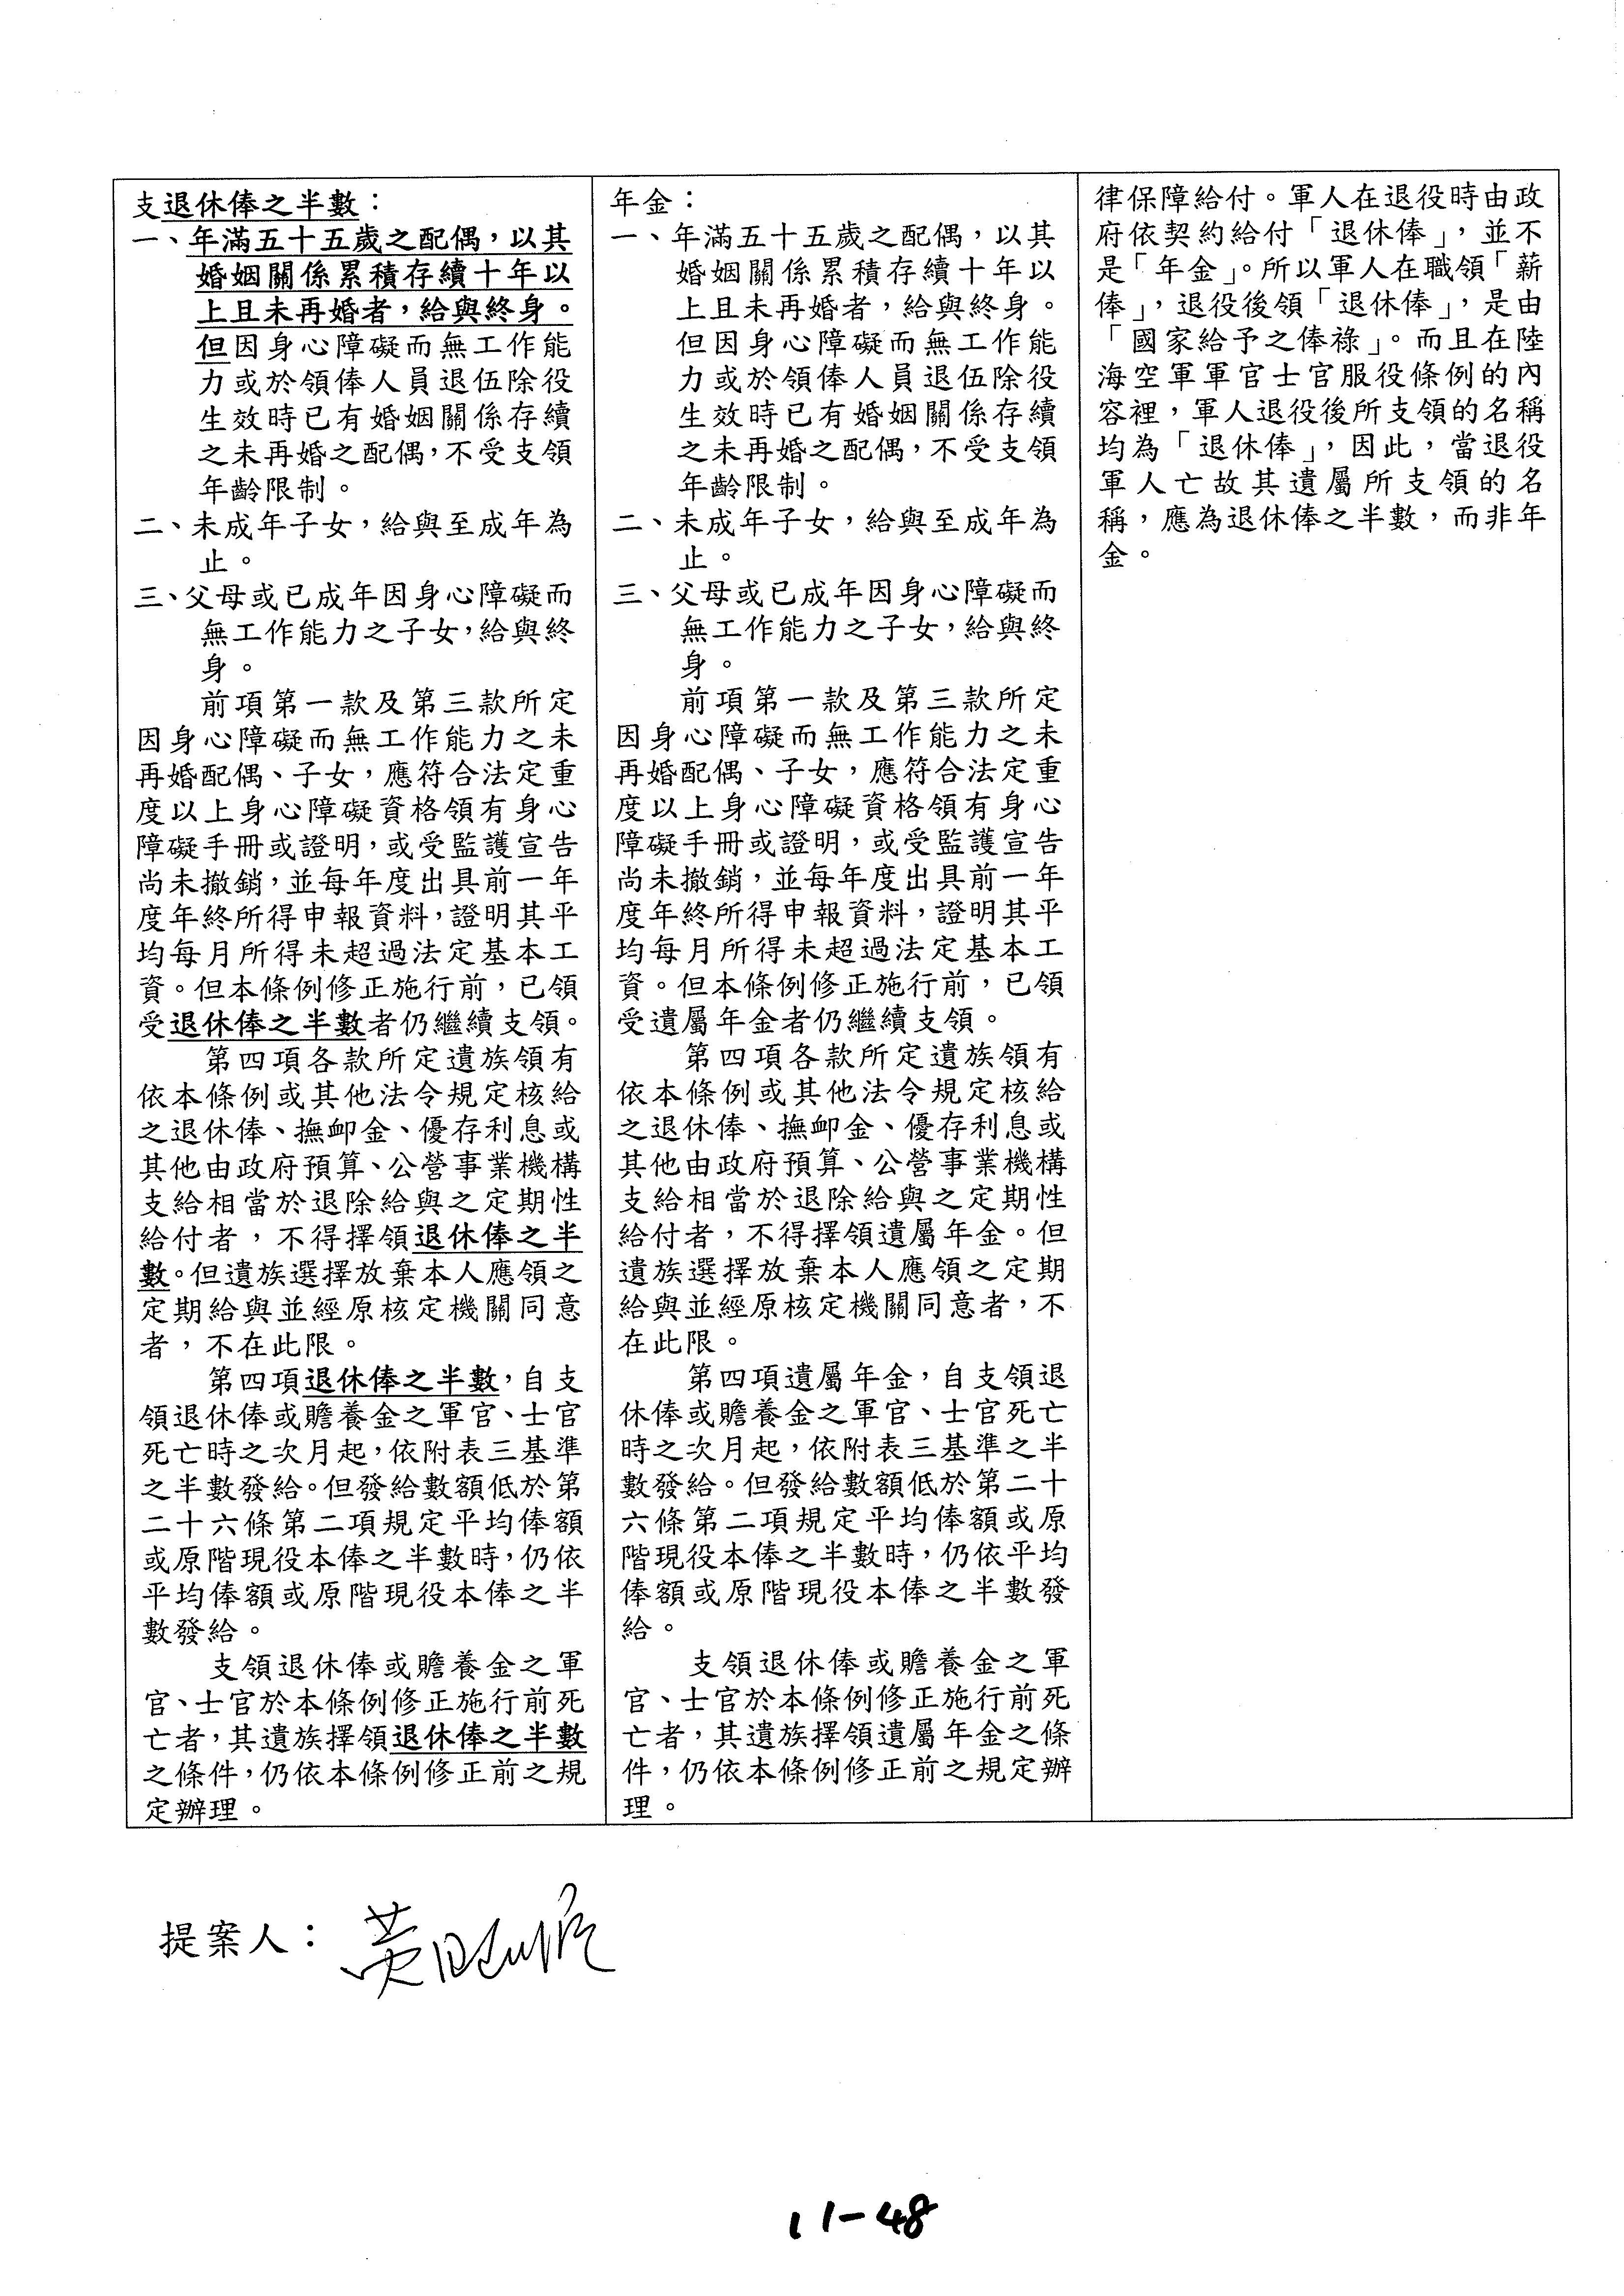 支退休俸之半數：
一、年滿五十五歲之配偶，以其
婚姻關係累積存續十年以
上且未再婚者，給與終身。
但因身心障礙而無工作能
力或於領俸人員退伍除役
生效時已有婚姻關係存續
之未再婚之配偶，不受支領
年齡限制。
二、未成年子女，給與至成年為
止。
三、父母或已成年因身心障礙而
無工作能力之子女，給與終
身。
前項第一款及第三款所定
因身心障礙而無工作能力之未
再婚配偶、子女，應符合法定重
度以上身心障礙資格領有身心
障礙手冊或證明，或受監護宣告
尚未撤銷，並每年度出具前一年
度年終所得申報資料，證明其平
均每月所得未超過法定基本工
資。但本條例修正施行前，已領
受退休俸之半數者仍繼續支領。
第四項各款所定遺族領有
依本條例或其他法令規定核給
之退休俸、撫卹金、優存利息或
其他由政府預算、公營事業機構
支給相當於退除給與之定期性
給付者，不得擇領退休俸之半
數。但遺族選擇放棄本人應領之
定期給與並經原核定機關同意
者，不在此限。
第四項退休俸之半數，自支
領退休俸或贍養金之軍官、士官
死亡時之次月起，依附表三基準
之半數發給。但發給數額低於第
二十六條第二項規定平均俸額
或原階現役本俸之半數時，仍依
平均俸額或原階現役本俸之半
數發給。
支領退休俸或贍養金之軍
官、士官於本條例修正施行前死
亡者，其遺族擇領退休俸之半數
之條件，仍依本條例修正前之規
定辦理。
年金：
一、年滿五十五歲之配偶，以其
婚姻關係累積存續十年以
上且未再婚者，給與終身。
但因身心障礙而無工作能
力或於領俸人員退伍除役
生效時已有婚姻關係存續
之未再婚之配偶，不受支領
年齡限制。
二、未成年子女，給與至成年為
止。
三、父母或已成年因身心障礙而
無工作能力之子女，給與終
身。
前項第一款及第三款所定
因身心障礙而無工作能力之未
再婚配偶、子女，應符合法定重
度以上身心障礙資格領有身心
障礙手冊或證明，或受監護宣告
尚未撤銷，並每年度出具前一年
度年終所得申報資料，證明其平
均每月所得未超過法定基本工
資。但本條例修正施行前，已領
受遺屬年金者仍繼續支領。
第四項各款所定遺族領有
依本條例或其他法令規定核給
之退休俸、撫卹金、優存利息或
其他由政府預算、公營事業機構
支給相當於退除給與之定期性
給付者，不得擇領遺屬年金。但
遺族選擇放棄本人應領之定期
給與並經原核定機關同意者，不
在此限。
第四項遺屬年金，自支領退
休俸或贍養金之軍官、士官死亡
時之次月起，依附表三基準之半
數發給。但發給數額低於第二十
六條第二項規定平均俸額或原
階現役本俸之半數時，仍依平均
俸額或原階現役本俸之半數發
給。
支領退休俸或贍養金之軍
官、士官於本條例修正施行前死
亡者，其遺族擇領遺屬年金之條
件，仍依本條例修正前之規定辦
理。
律保障給付。軍人在退役時由政
府依契約給付「退休俸」，並不
是「年金」。所以軍人在職領「薪
俸」，退役後領「退休俸」，是由
「國家給予之俸祿」。而且在陸
海空軍軍官士官服役條例的內
容裡，軍人退役後所支領的名稱
均為「退休俸」，因此，當退役
軍人亡故其遺屬所支領的名
稱，應為退休俸之半數，而非年
金。
提案人：
11-48